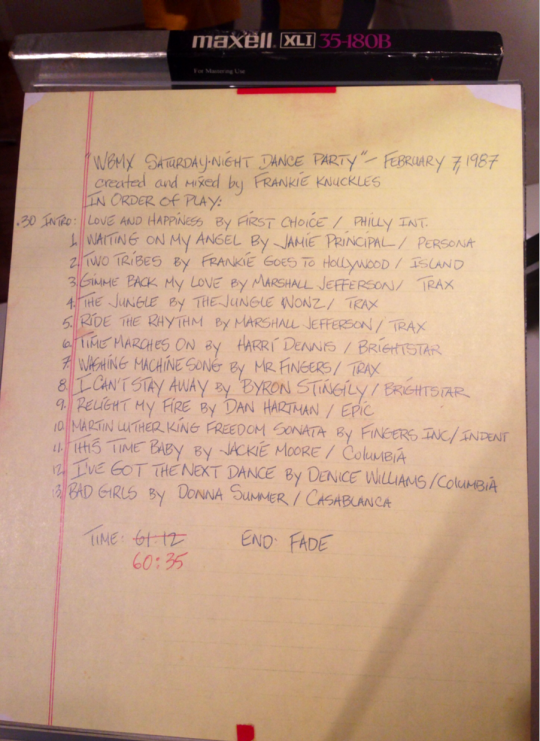 maxell XLI 35-180B
For Mastering Use
"WBMX SATURDAY·NIGHT DANCE PARTY" – FEBRUARY 7, 1987
created and mixed by FRANKIE KNUCKLES
IN ORDER OF PLAY:
.30 INTRO: LOVE AND HAPPINESS by FIRST CHOICE / PHILLY INT.
1. WAITING ON MY ANGEL by JAMIE PRINCIPAL / PERSONA
2. TWO TRIBES by FRANKIE GOES TO HOLLYWOOD / ISLAND
3. GIMME BACK MY LOVE by MARSHALL JEFFERSON / TRAX
4. THE JUNGLE by THE JUNGLE WONZ / TRAX
5. RIDE THE RHYTHM by MARSHALL JEFFERSON / TRAX
6. TIME MARCHES ON by HARRI DENNIS / BRIGHTSTAR
7. WASHING MACHINE SONG by MR FINGERS / TRAX
8. I CAN'T STAY AWAY by BYRON STINGILY / BRIGHTSTAR
9. RELIGHT MY FIRE by DAN HARTMAN / EPIC
10. MARTIN LUTHER KING FREEDOM SONATA by FINGERS INC / INDENT
11. THIS TIME BABY by JACKIE MOORE / COLUMBIA
12. I'VE GOT THE NEXT DANCE by DENICE WILLIAMS / COLUMBIA
13. BAD GIRLS by DONNA SUMMER / CASABLANCA
TIME: 61:12 END: FADE
60:35